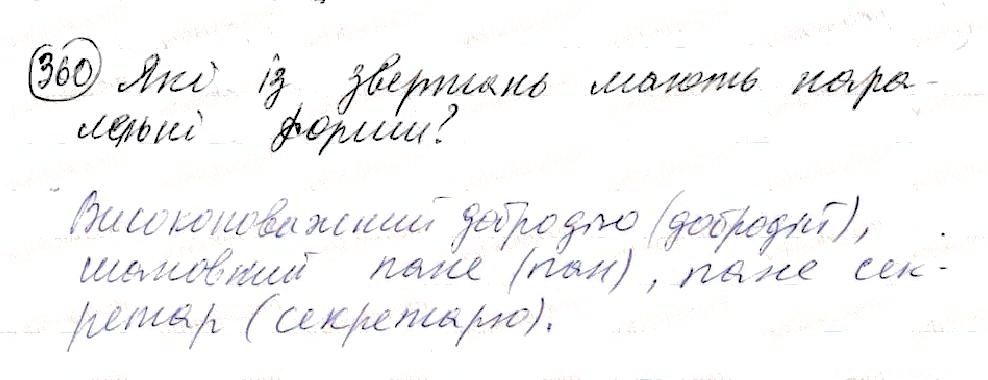 360 Які із звертань мають пара-
лельні форми?
Високоповажний добродію (добродій),
шановний пане (пан), пане сек-
ретар (секретарю).